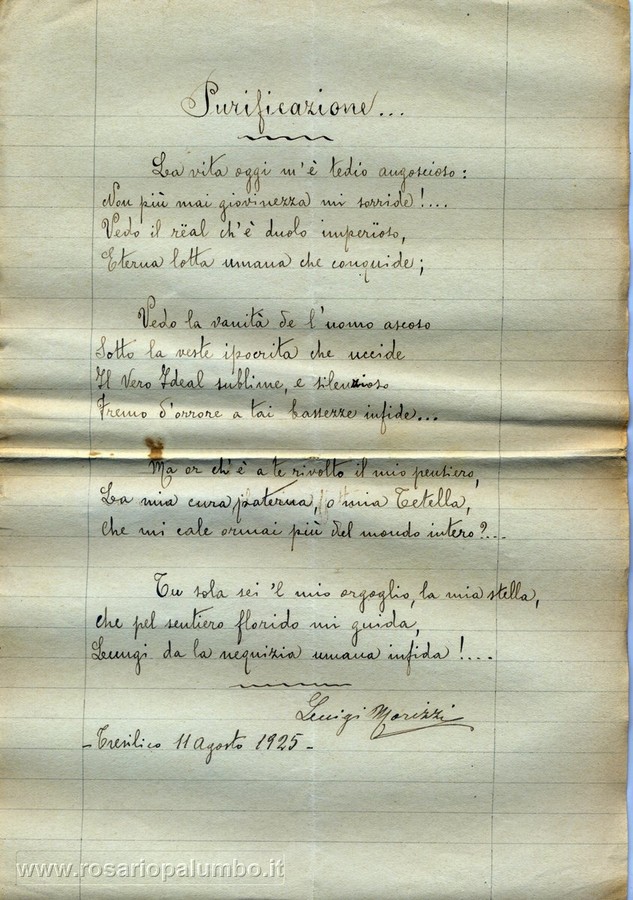 Purificazione...
La vita oggi m'è tedio angoscioso:
Non più mai giovinezza mi sorride!...
Vedo il rëal ch'è duolo imperïoso,
Eterna lotta umana che conquide;
Vedo la vanità de l'uomo ascoso
Sotto la veste ipocrita che uccide
Il Vero Ideal sublime, e silenzioso
Fremo d'orrore a tai bassezze infide...
Ma or ch'è a te rivolto il mio pensiero,
La mia cura paterna, o mia Tetella,
Che mi cale ormai più del mondo intero?...
Tu sola sei 'l mio orgoglio, la mia stella,
che pel sentiero florido mi guida,
Lungi da la nequizia umana infida!...
Luigi Morizzi
- Tresilico 11 Agosto 1925 -
www.rosariopalumbo.it